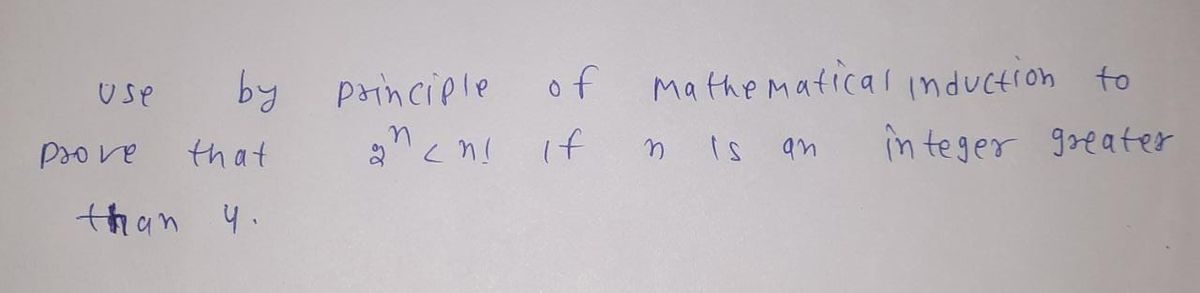 use by principle of mathematical induction to
prove that 2ⁿ < n! if n is an integer greater
than 4.